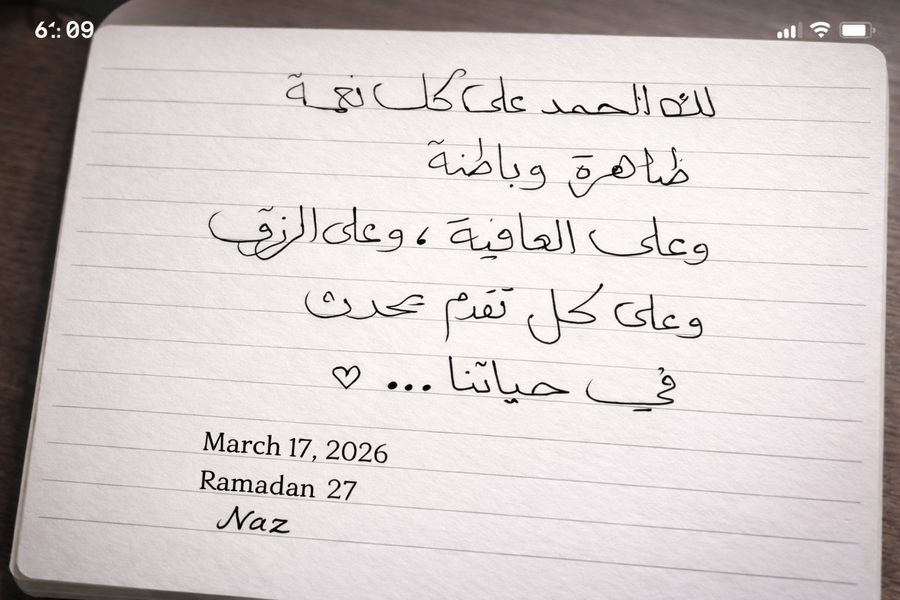 09
لك الحمد على كل نعمة
ظاهرة وباطنة
وعلى العافية ، وعلى الرزق
وعلى كل تقدم يحدث
في حياتنا ... ♡
March 17, 2026
Ramadan 27
Naz